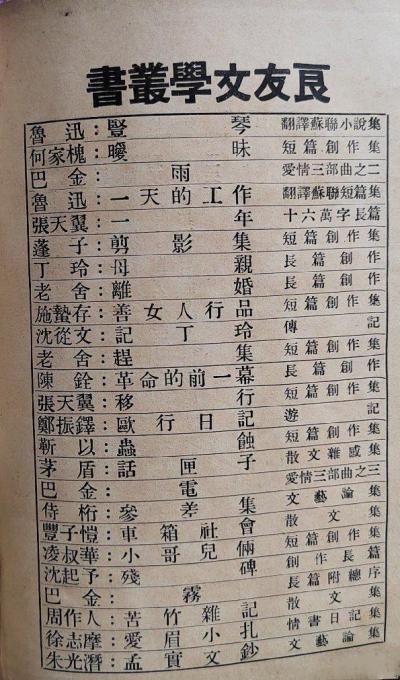 良友文學叢書
魯迅：豎琴 翻譯蘇聯小說集
何家槐：曖昧 短篇創作集
巴金：雨 愛情三部曲之二
魯迅：一天的工作 翻譯蘇聯短篇集
張天翼：一年 十六萬字長篇
蓬子：剪影集 短篇創作集
丁玲：母親 長篇創作
老舍：離婚 長篇創作
施蟄存：善女人行品 短篇創作集
沈從文：記丁玲 傳記
老舍：趕集 短篇創作集
陳銓：革命的前一幕 長篇創作
張天翼：移行 短篇創作集
鄭振鐸：歐行日記 遊記
靳以：蟲蝕 短篇創作集
茅盾：話匣子 散文雜感集
巴金：電 愛情三部曲之三
侍桁：參差集 文藝論集
豐子愷：車箱社會 散文集
凌叔華：小哥兒倆 短篇創作集
沈起予：殘碑 創作長篇
巴金：霧 長篇附總序
周作人：苦竹雜記 散文集
徐志摩：愛眉小扎 情書日記集
朱光潛：孟實文鈔 文藝論集